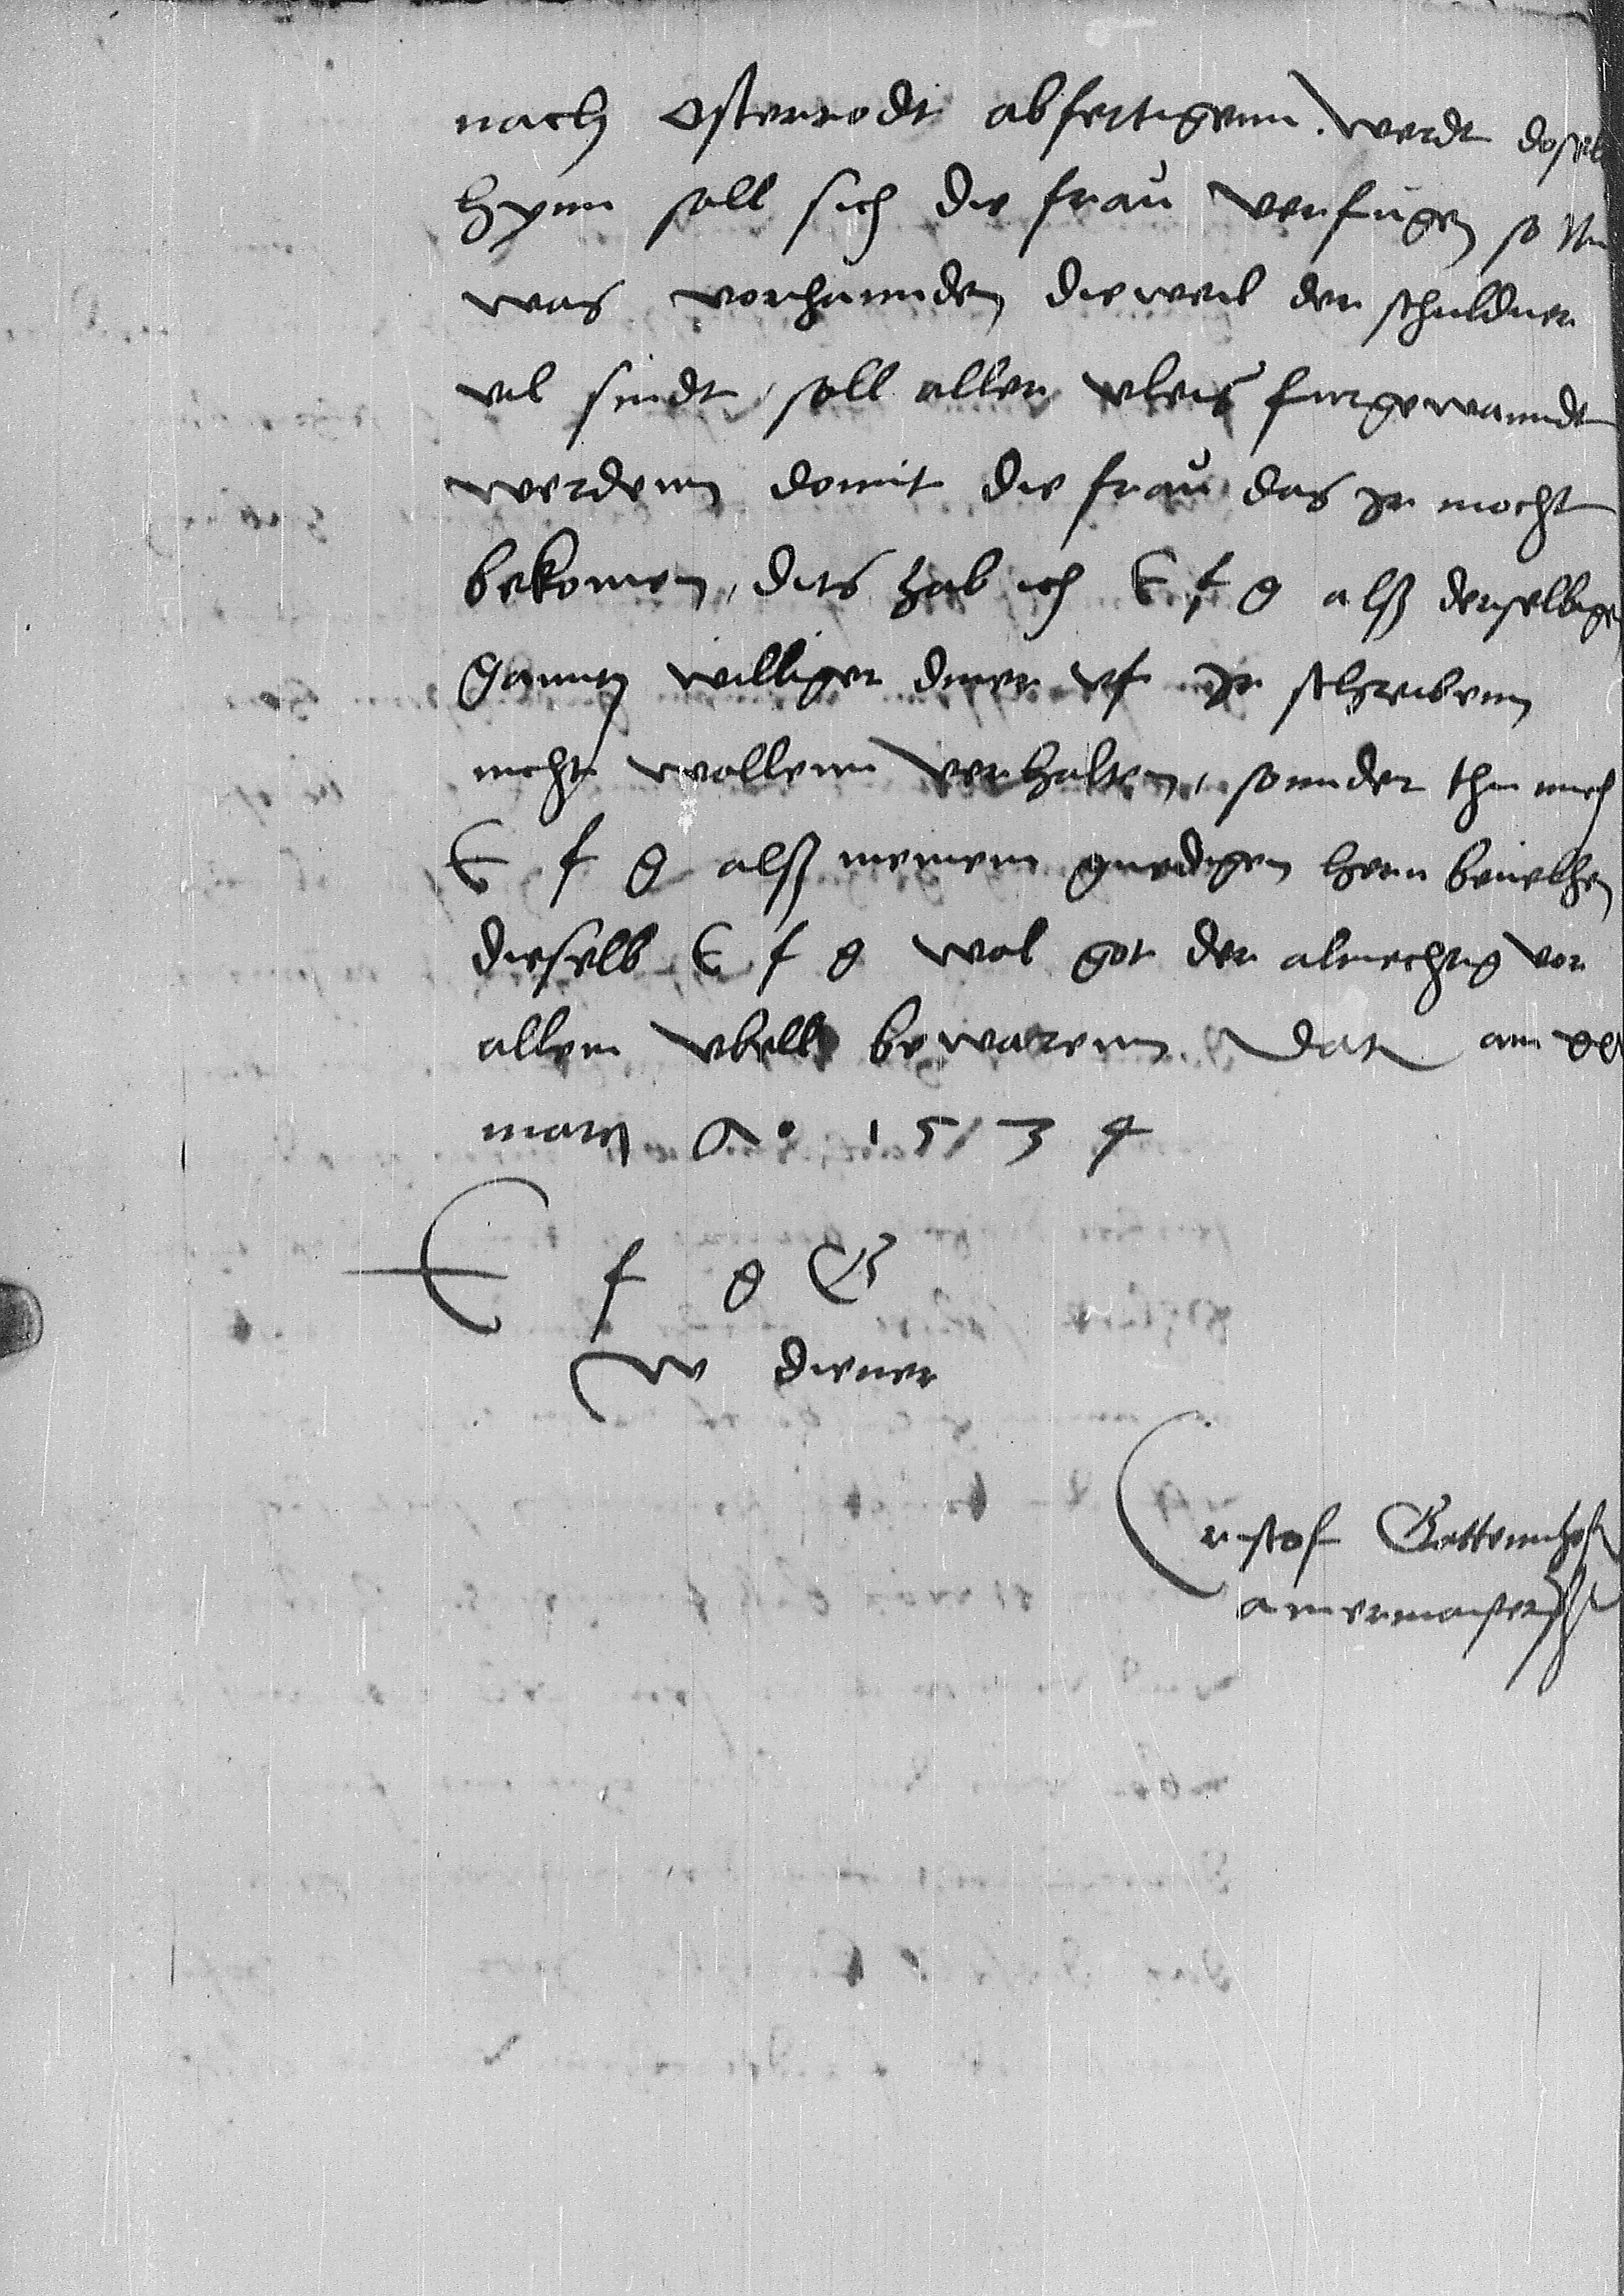 nach Osterrodt abfertigenn. werdt dosel
hynn soll sich die frau verfugen so
was vorhannden dieweil der schuldner
vil sindt, soll aller vleis furgewanndt
werdenn domit die frau das yr mocht
bekomen, dits hab ich E f g alß derselbige
gantz williger diner uf yr schreibenn
nicht wollenn verhalten, sonnder thu mich
E f g alß meinem gnedigen hern bevelhen
dieselb E f g wol got der almechtig vor
allem ubell bewarenn Dat am
martz Ao 1534
E f g
w diener
Cristof Gattennhof